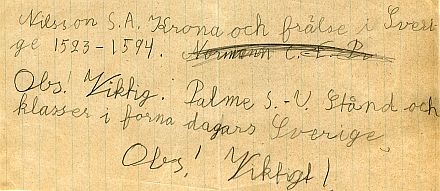 Nilsson S.A. Krona och frälse i Sveri-
ge 1523-1594. Normann C.E. Pr
Obs! Viktig. Palme S.-U. Stånd och
klasser i forna dagars Sverige
Obs! Viktigt!